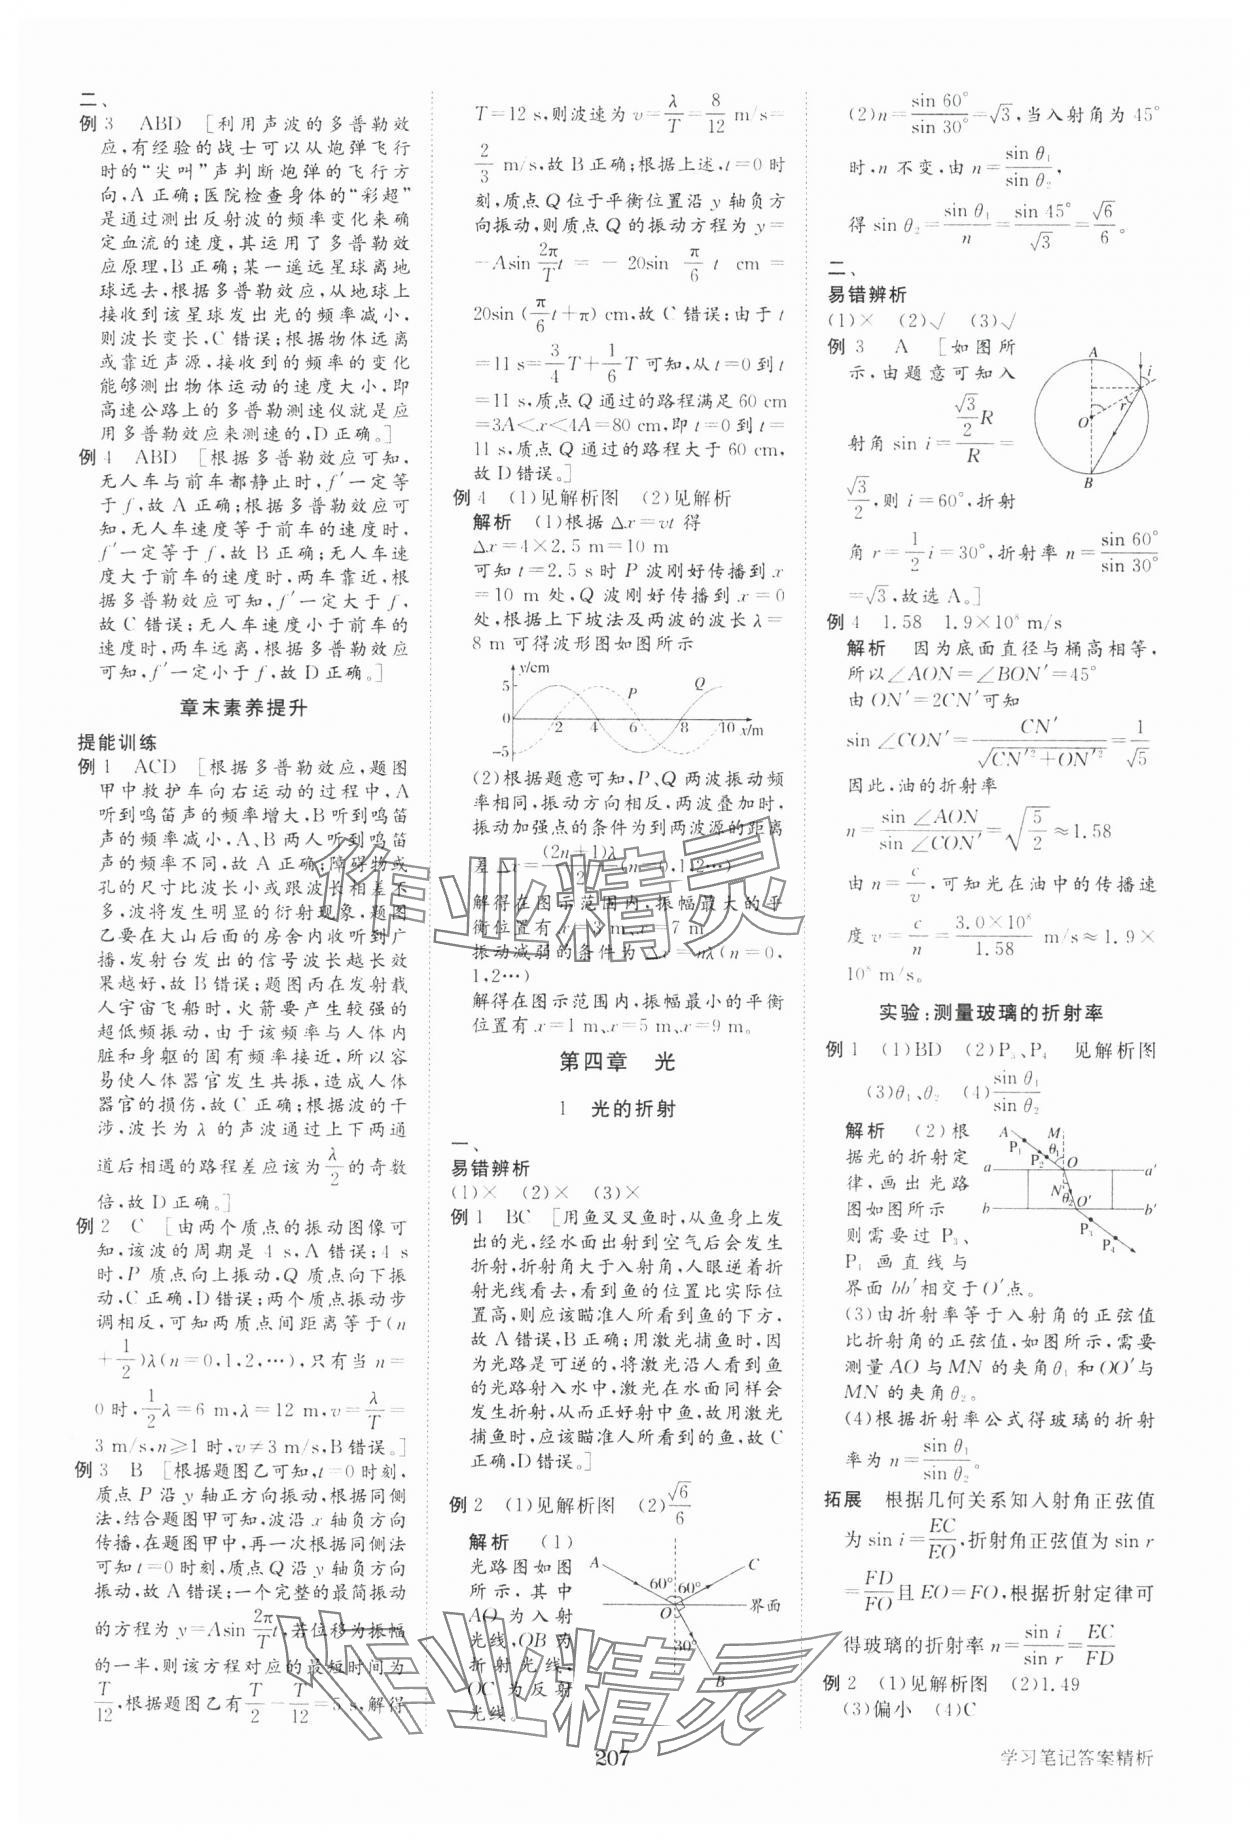 二、
例3 ABD [利用声波的多普勒效
应,有经验的战士可以从炮弹飞行
时的“尖叫”声判断炮弹的飞行方
向,A正确;医院检查身体的“彩超”
是通过测出反射波的频率变化来确
定血流的速度,其运用了多普勒效
应原理,B正确;某一遥远星球离地
球远去,根据多普勒效应,从地球上
接收到该星球发出光的频率减小,
则波长变长,C错误;根据物体远离
或靠近声源,接收到的频率的变化
能够测出物体运动的速度大小,即
高速公路上的多普勒测速仪就是应
用多普勒效应来测速的,D正确。]
例4 ABD [根据多普勒效应可知,
无人车与前车都静止时,f′一定等
于f,故A正确;根据多普勒效应可
知,无人车速度等于前车的速度时,
f′一定等于f,故B正确;无人车速
度大于前车的速度时,两车靠近,根
据多普勒效应可知,f′一定大于f,
故C错误;无人车速度小于前车的
速度时,两车远离,根据多普勒效应
可知,f′一定小于f,故D正确。]
章末素养提升
提能训练
例1 ACD [根据多普勒效应,题图
甲中救护车向右运动的过程中,A
听到鸣笛声的频率增大,B听到鸣笛
声的频率减小,A、B两人听到鸣笛
声的频率不同,故A正确;障碍物或
孔的尺寸比波长小或跟波长相差不
多,波将发生明显的衍射现象,题图
乙要在大山后面的房舍内收听到广
播,发射台发出的信号波长越长效
果越好,故B错误;题图丙在发射载
人宇宙飞船时,火箭要产生较强的
超低频振动,由于该频率与人体内
脏和身躯的固有频率接近,所以容
易使人体器官发生共振,造成人体
器官的损伤,故C正确;根据波的干
涉,波长为λ的声波通过上下两通
道后相遇的路程差应该为λ/2的奇数
倍,故D正确。]
例2 C [由两个质点的振动图像可
知,该波的周期是4 s,A错误;4 s
时,P质点向上振动,Q质点向下振
动,C正确,D错误;两个质点振动步
调相反,可知两质点间距离等于(n
+1/2)λ(n=0,1,2,…),只有当n=
0时,1/2λ=6 m,λ=12 m,v=λ/T=
3 m/s,n≥1时,v≠3 m/s,B错误。]
例3 B [根据题图乙可知,t=0时刻,
质点P沿y轴正方向振动,根据同侧
法,结合题图甲可知,波沿x轴负方向
传播,在题图甲中,再一次根据同侧法
可知t=0时刻,质点Q沿y轴负方向
振动,故A错误;一个完整的最简振动
的方程为y=Asin 2π/T t,若位移为振幅
的一半,则该方程对应的最短时间为
T/12,根据题图乙有T/2-T/12=5 s,解得
T=12 s,则波速为v=λ/T=8/12 m/s=
2/3 m/s,故B正确;根据上述,t=0时
刻,质点Q位于平衡位置沿y轴负方
向振动,则质点Q的振动方程为y=
-Asin 2π/T t=-20sin π/6 t cm=
20sin (π/6 t+π) cm,故C错误;由于t
=11 s=3/4 T+1/6 T可知,从t=0到t
=11 s,质点Q通过的路程满足60 cm
=3A<x<4A=80 cm,即t=0到t=
11 s,质点Q通过的路程大于60 cm,
故D错误。]
例4 (1)见解析图 (2)见解析
解析 (1)根据Δx=vt得
Δx=4×2.5 m=10 m
可知t=2.5 s时P波刚好传播到x
=10 m处,Q波刚好传播到x=0
处,根据上下坡法及两波的波长λ=
8 m可得波形图如图所示
y/cm
5
0
-5
P
Q
2 4 6 8 10 x/m
(2)根据题意可知,P、Q两波振动频
率相同,振动方向相反,两波叠加时,
振动加强点的条件为到两波源的距离
差Δx=(2n+1)λ/2(n=0,1,2…)
解得在图示范围内,振幅最大的平
衡位置有x=3 m、x=7 m
振动减弱的条件为Δx=nλ(n=0,
1,2…)
解得在图示范围内,振幅最小的平衡
位置有x=1 m、x=5 m、x=9 m。
第四章 光
1 光的折射
一、
易错辨析
(1)× (2)× (3)×
例1 BC [用鱼叉叉鱼时,从鱼身上发
出的光,经水面出射到空气后会发生
折射,折射角大于入射角,人眼逆着折
射光线看去,看到鱼的位置比实际位
置高,则应该瞄准人所看到鱼的下方,
故A错误,B正确;用激光捕鱼时,因
为光路是可逆的,将激光沿人看到鱼
的光路射入水中,激光在水面同样会
发生折射,从而正好射中鱼,故用激光
捕鱼时,应该瞄准人所看到的鱼,故C
正确,D错误。]
例2 (1)见解析图 (2)√6/6
解析 (1)
光路图如图
所示,其中
AO为入射
光线,OB为
折射光线,
OC为反射
光线。
A
C
60°
60°
界面
O
30°
B
(2)n=sin 60°/sin 30°=√3,当入射角为45°
时,n不变,由n=sin θ₁/sin θ₂,
得sin θ₂=sin θ₁/n=sin 45°/√3=√6/6。
二、
易错辨析
(1)× (2)√ (3)√
例3 A [如图所
示,由题意可知入
射角sin i=(√3/2 R)/R=
√3/2,则i=60°,折射
角r=1/2 i=30°,折射率n=sin 60°/sin 30°
=√3,故选A。]
A
i
r
O
B
例4 1.58 1.9×10⁸ m/s
解析 因为底面直径与桶高相等,
所以∠AON=∠BON′=45°
由ON′=2CN′可知
sin ∠CON′=CN′/√(CN′²+ON′²)=1/√5
因此,油的折射率
n=sin ∠AON/sin ∠CON′=√(5/2)≈1.58
由n=c/v,可知光在油中的传播速
度v=c/n=3.0×10⁸/1.58 m/s≈1.9×
10⁸ m/s。
实验:测量玻璃的折射率
例1 (1)BD (2)P₃、P₄ 见解析图
(3)θ₁、θ₂ (4)sin θ₁/sin θ₂
解析 (2)根
据光的折射定
律,画出光路
图如图所示
则需要过P₃、
P₄画直线与
界面bb′相交于O′点。
A
M
P₁
P₂
θ₁
O
a
a′
N
θ₂
O′
b
b′
P₃
P₄
(3)由折射率等于入射角的正弦值
比折射角的正弦值,如图所示,需要
测量AO与MN的夹角θ₁和OO′与
MN的夹角θ₂。
(4)根据折射率公式得玻璃的折射
率为n=sin θ₁/sin θ₂。
拓展 根据几何关系知入射角正弦值
为sin i=EC/EO,折射角正弦值为sin r
=FD/FO且EO=FO,根据折射定律可
得玻璃的折射率n=sin i/sin r=EC/FD
例2 (1)见解析图 (2)1.49
(3)偏小 (4)C
作业精灵
作业精灵
207
学习笔记答案精析